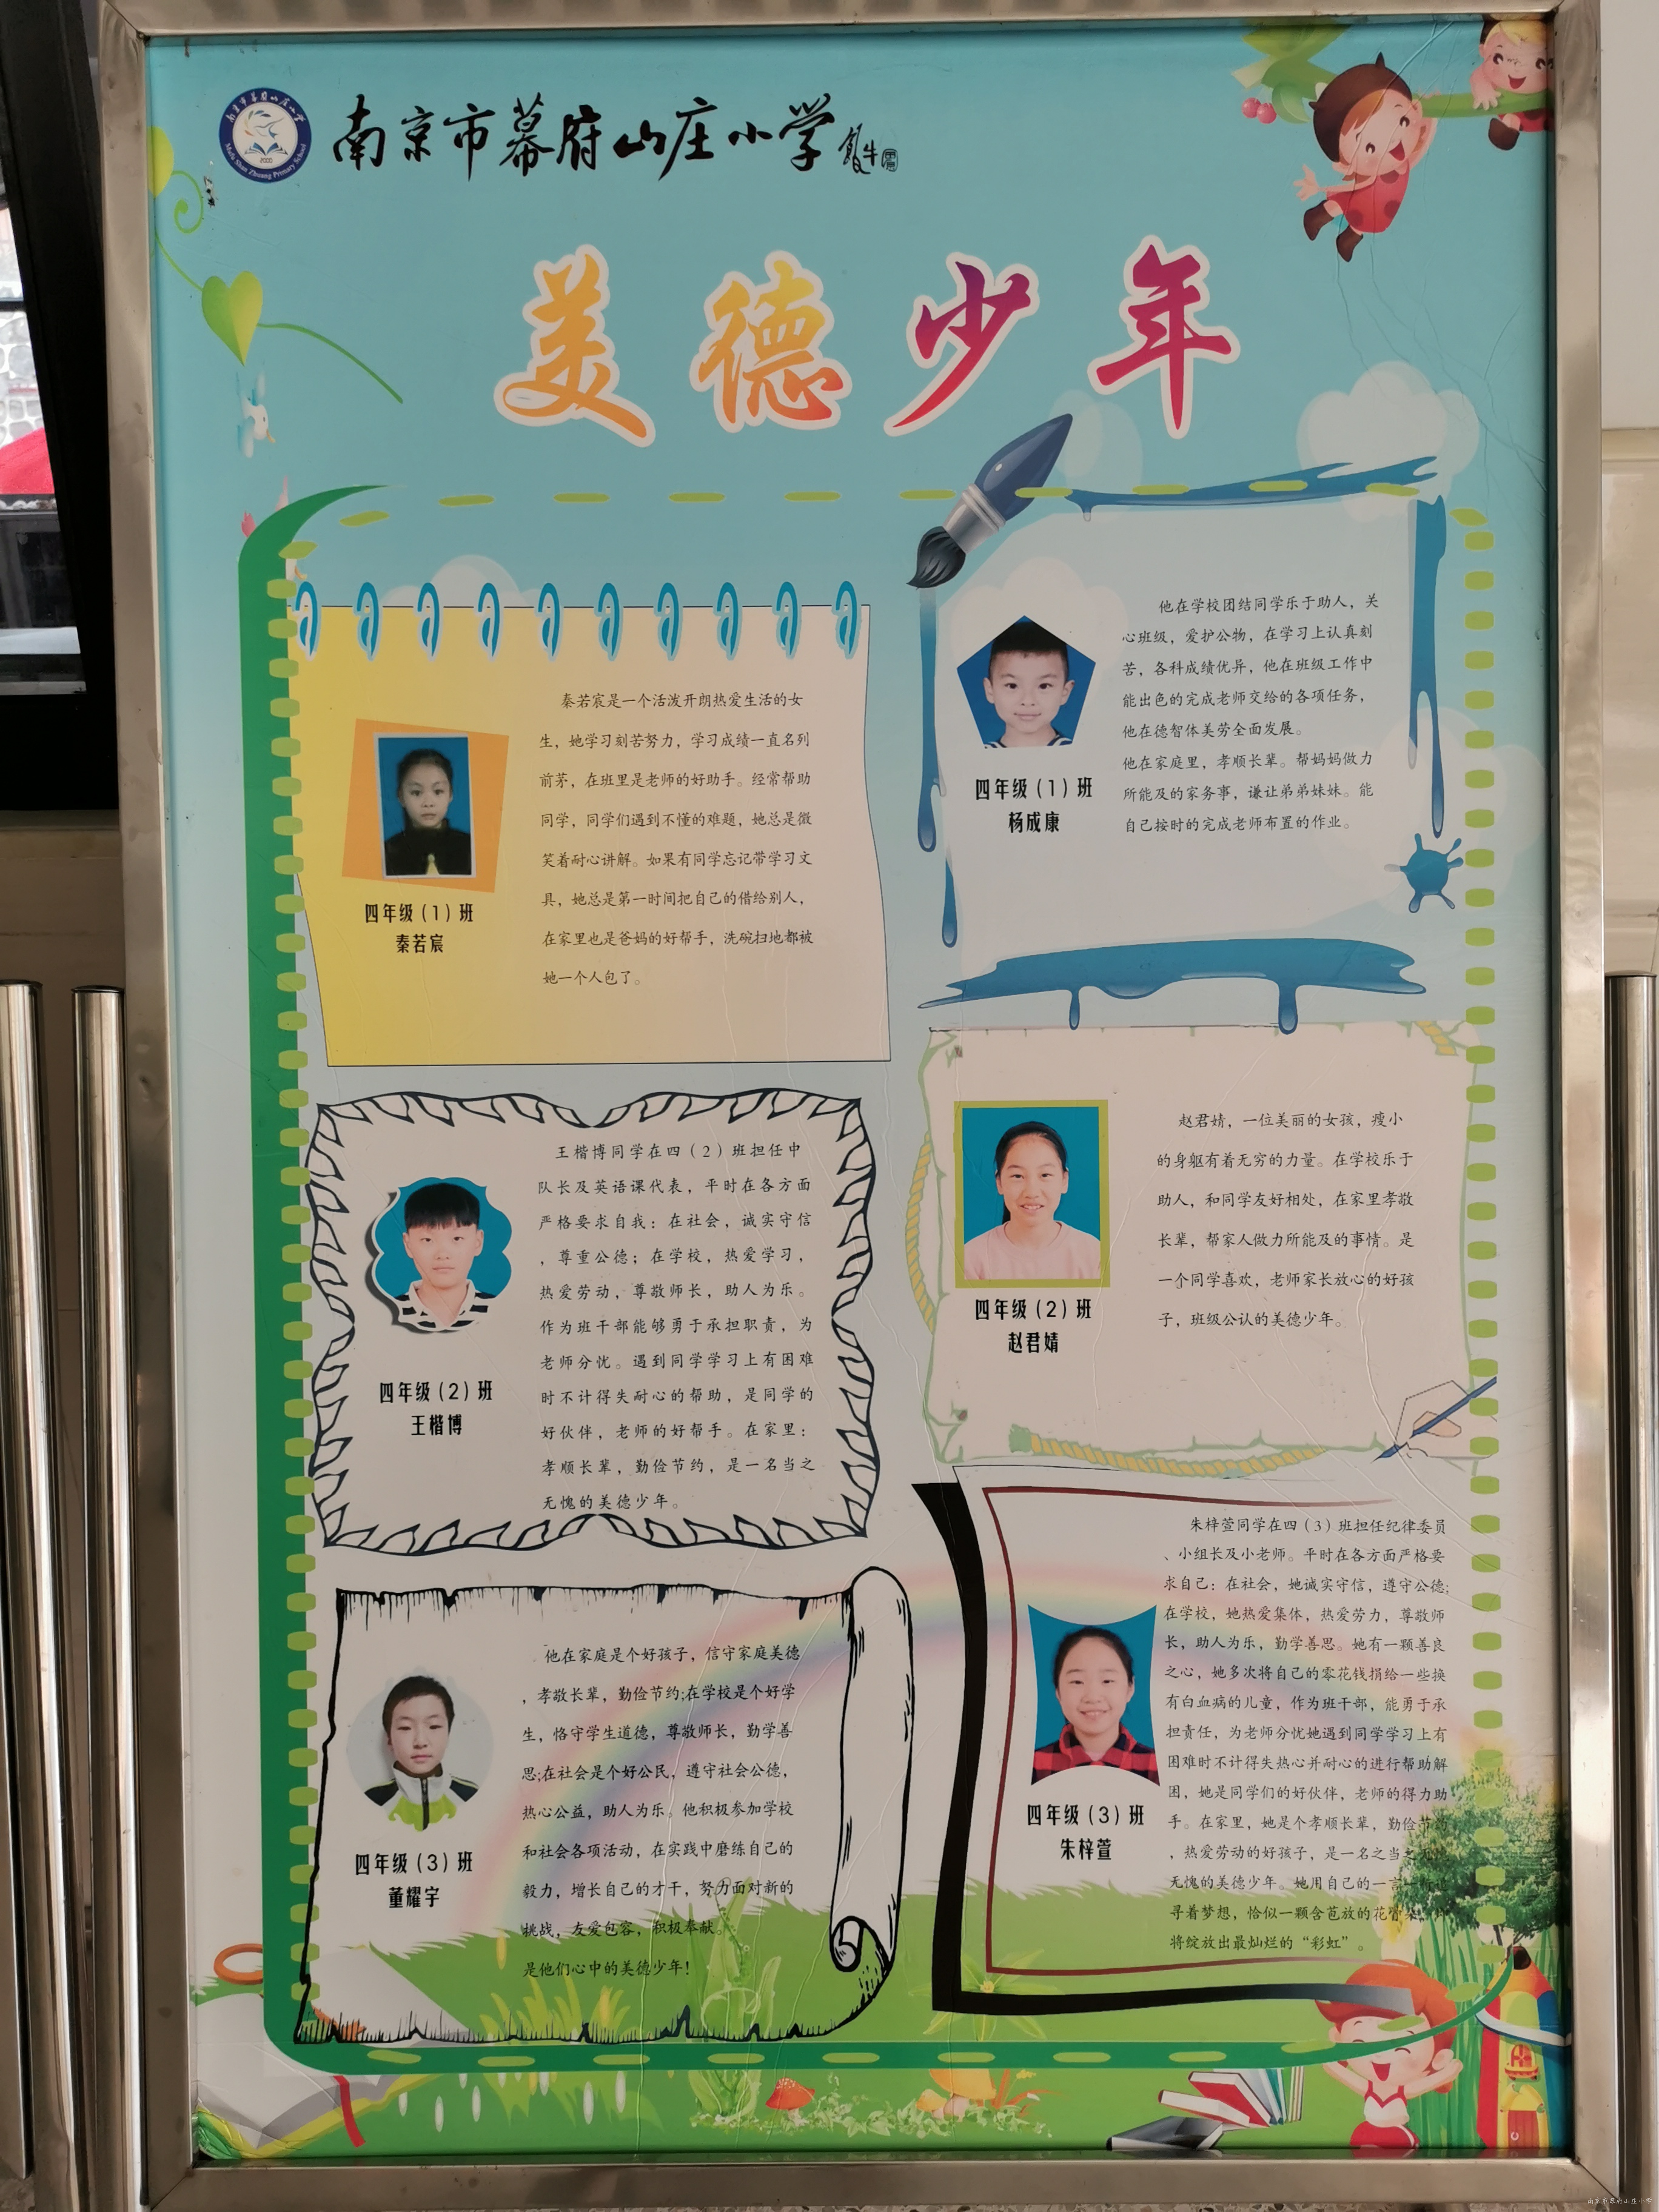 南京市幕府山庄小学
Mufu Shan Zhuang Primary School
2000
美德少年
秦若宸是一个活泼开朗热爱生活的女
生，她学习刻苦努力，学习成绩一直名列
前茅，在班里是老师的好助手。经常帮助
同学，同学们遇到不懂的难题，她总是微
笑着耐心讲解。如果有同学忘记带学习文
具，她总是第一时间把自己的借给别人，
在家里也是爸妈的好帮手，洗碗扫地都被
她一个人包了。
四年级（1）班
秦若宸
他在学校团结同学乐于助人，关
心班级，爱护公物，在学习上认真刻
苦，各科成绩优异，他在班级工作中
能出色的完成老师交给的各项任务，
他在德智体美劳全面发展。
他在家庭里，孝顺长辈。帮妈妈做力
所能及的家务事，谦让弟弟妹妹。能
自己按时的完成老师布置的作业。
四年级（1）班
杨成康
王楷博同学在四（2）班担任中
队长及英语课代表，平时在各方面
严格要求自我：在社会，诚实守信
，尊重公德；在学校，热爱学习，
热爱劳动，尊敬师长，助人为乐。
作为班干部能够勇于承担职责，为
老师分忧。遇到同学学习上有困难
时不计得失耐心的帮助，是同学的
好伙伴，老师的好帮手。在家里：
孝顺长辈，勤俭节约，是一名当之
无愧的美德少年。
四年级（2）班
王楷博
赵君婧，一位美丽的女孩，瘦小
的身躯有着无穷的力量。在学校乐于
助人，和同学友好相处，在家里孝敬
长辈，帮家人做力所能及的事情。是
一个同学喜欢，老师家长放心的好孩
子，班级公认的美德少年。
四年级（2）班
赵君婧
他在家庭是个好孩子，信守家庭美德
，孝敬长辈，勤俭节约;在学校是个好学
生，恪守学生道德，尊敬师长，勤学善
思;在社会是个好公民，遵守社会公德，
热心公益，助人为乐。他积极参加学校
和社会各项活动，在实践中磨练自己的
毅力，增长自己的才干，努力面对新的
挑战，友爱包容，积极奉献。
是他们心中的美德少年！
四年级（3）班
董耀宇
朱梓萱同学在四（3）班担任纪律委员
、小组长及小老师。平时在各方面严格要
求自己：在社会，她诚实守信，遵守公德;
在学校，她热爱集体，热爱劳力，尊敬师
长，助人为乐，勤学善思。她有一颗善良
之心，她多次将自己的零花钱捐给一些换
有白血病的儿童，作为班干部，能勇于承
担责任，为老师分忧她遇到同学学习上有
困难时不计得失热心并耐心的进行帮助解
困，她是同学们的好伙伴，老师的得力助
手。在家里，她是个孝顺长辈，勤俭节约
，热爱劳动的好孩子，是一名之当之
无愧的美德少年。她用自己的一言一行追
寻着梦想，恰似一颗含苞放的花骨朵，
将绽放出最灿烂的“彩虹”。
四年级（3）班
朱梓萱
南京市幕府山庄小学